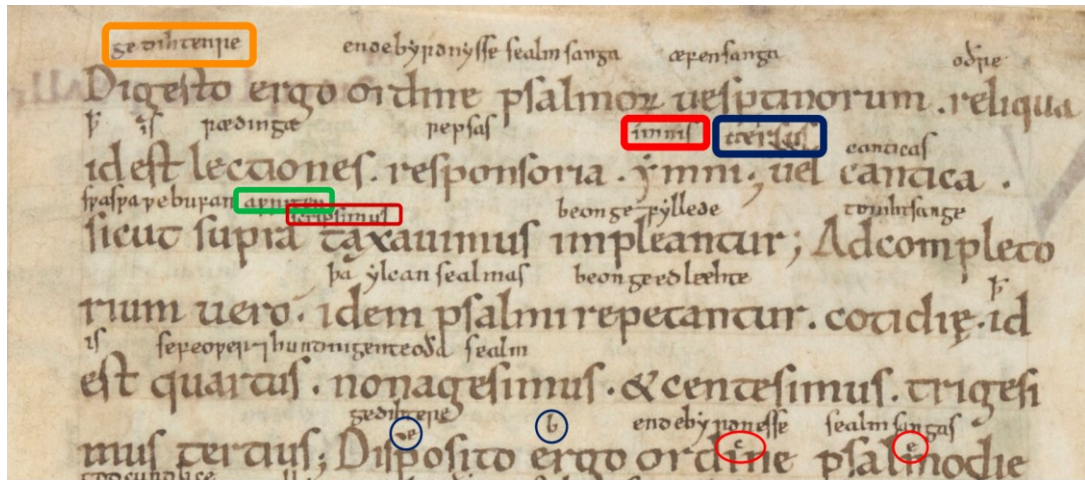 gedihtenre endebyrdnysse sealmsanga æfensanga oðre
Digesto ergo ordine psalmoꝝ uesptinorum . reliqua
þ is rædinga repsas imnis uersus canticas
id est lectiones . responsoria . ymni ; uel cantica .
swa swa we bufan awriten scripsimus beon gefyllede to nihtsange
sicut supra taxauimus impleantur ; Adcompleto
þa ylcan sealmas beon geedlehte þ
rium uero . idem psalmi repetantur . cotidię . id
is
est quartus . nonagesimus . & centesimus . trigesi
gedihtere e b endebyrdnesse c sealmsangas e
mus tertius ; Disposito ergo ordine psalmodie